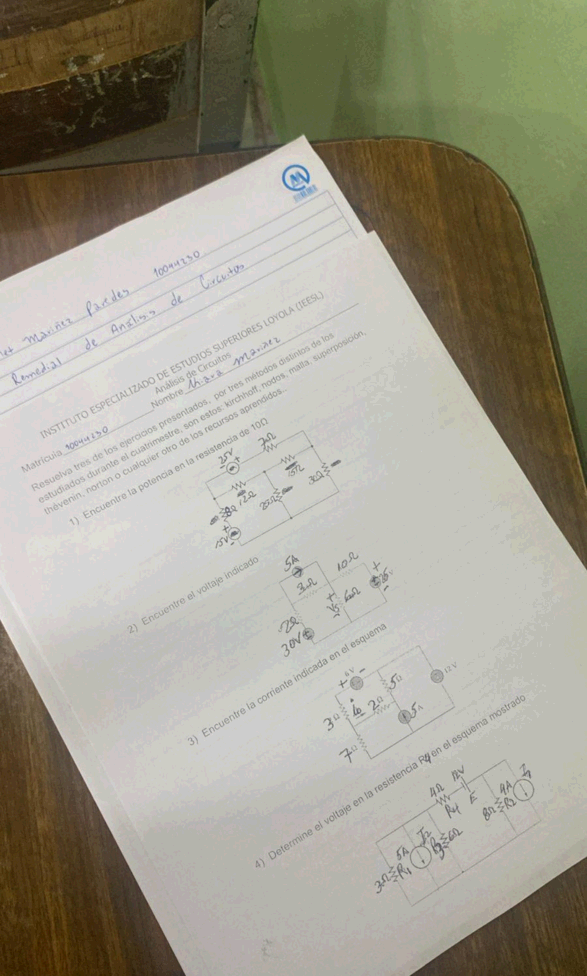 Mariñez Paredes 10044230
Remedial de Analisis de Circuitos
INSTITUTO ESPECIALIZADO DE ESTUDIOS SUPERIORES LOYOLA (IEESL)
Análisis de Circuitos
Matrícula 10044230 Nombre Mariñez
Resuelva tres de los ejercicios presentados, por tres métodos distintos de los
estudiados durante el cuatrimestre, son estos: kirchhoff, nodos, malla, superposición,
thévenin, norton o cualquier otro de los recursos aprendidos.
1) Encuentre la potencia en la resistencia de 10Ω
25V
7Ω
12Ω
15V
2) Encuentre el voltaje indicado
5A
3Ω
10Ω
2Ω
30V
6Ω
3) Encuentre la corriente indicada en el esquema
3Ω
2Ω
5Ω
7Ω
5A
12V
4) Determine el voltaje en la resistencia R4 en el esquema mostrado
4Ω
12V
R4
E
5A
I2
3Ω
R1
6Ω
8Ω
R2
4A